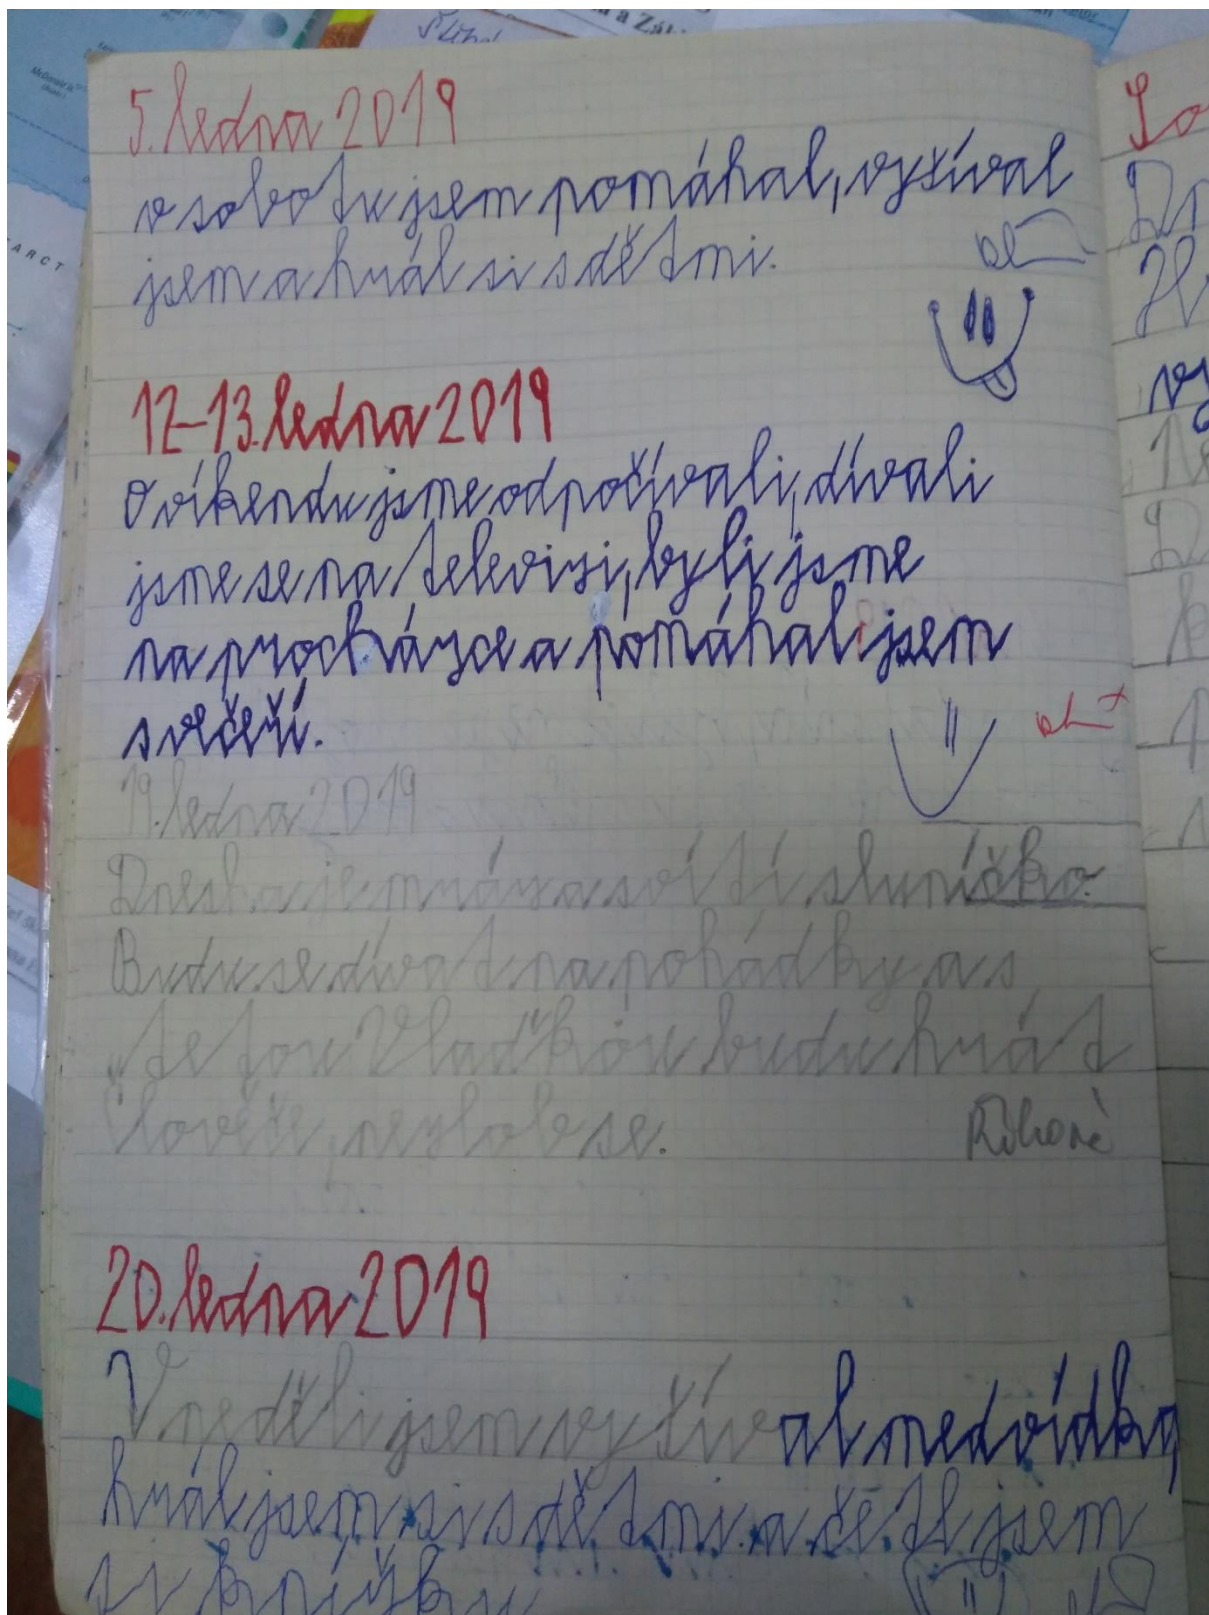 5. ledna 2019
v sobotu jsem pomáhal, vyšíval
jsem a hrál si s dětmi.
12-13. ledna 2019
O víkendu jsme odpočívali, dívali
jsme se na televizi, byli jsme
na procházce a pomáhal jsem
s večeří.
19. ledna 2019
Dneska je mráz a svítí sluníčko.
Budu se dívat na pohádky a s
tetou Vlaďkou budu hrát
Člověče, nezlob se.
20. ledna 2019
V neděli jsem vyšíval medvídka,
hrál jsem si s dětmi a četl jsem
si knížku